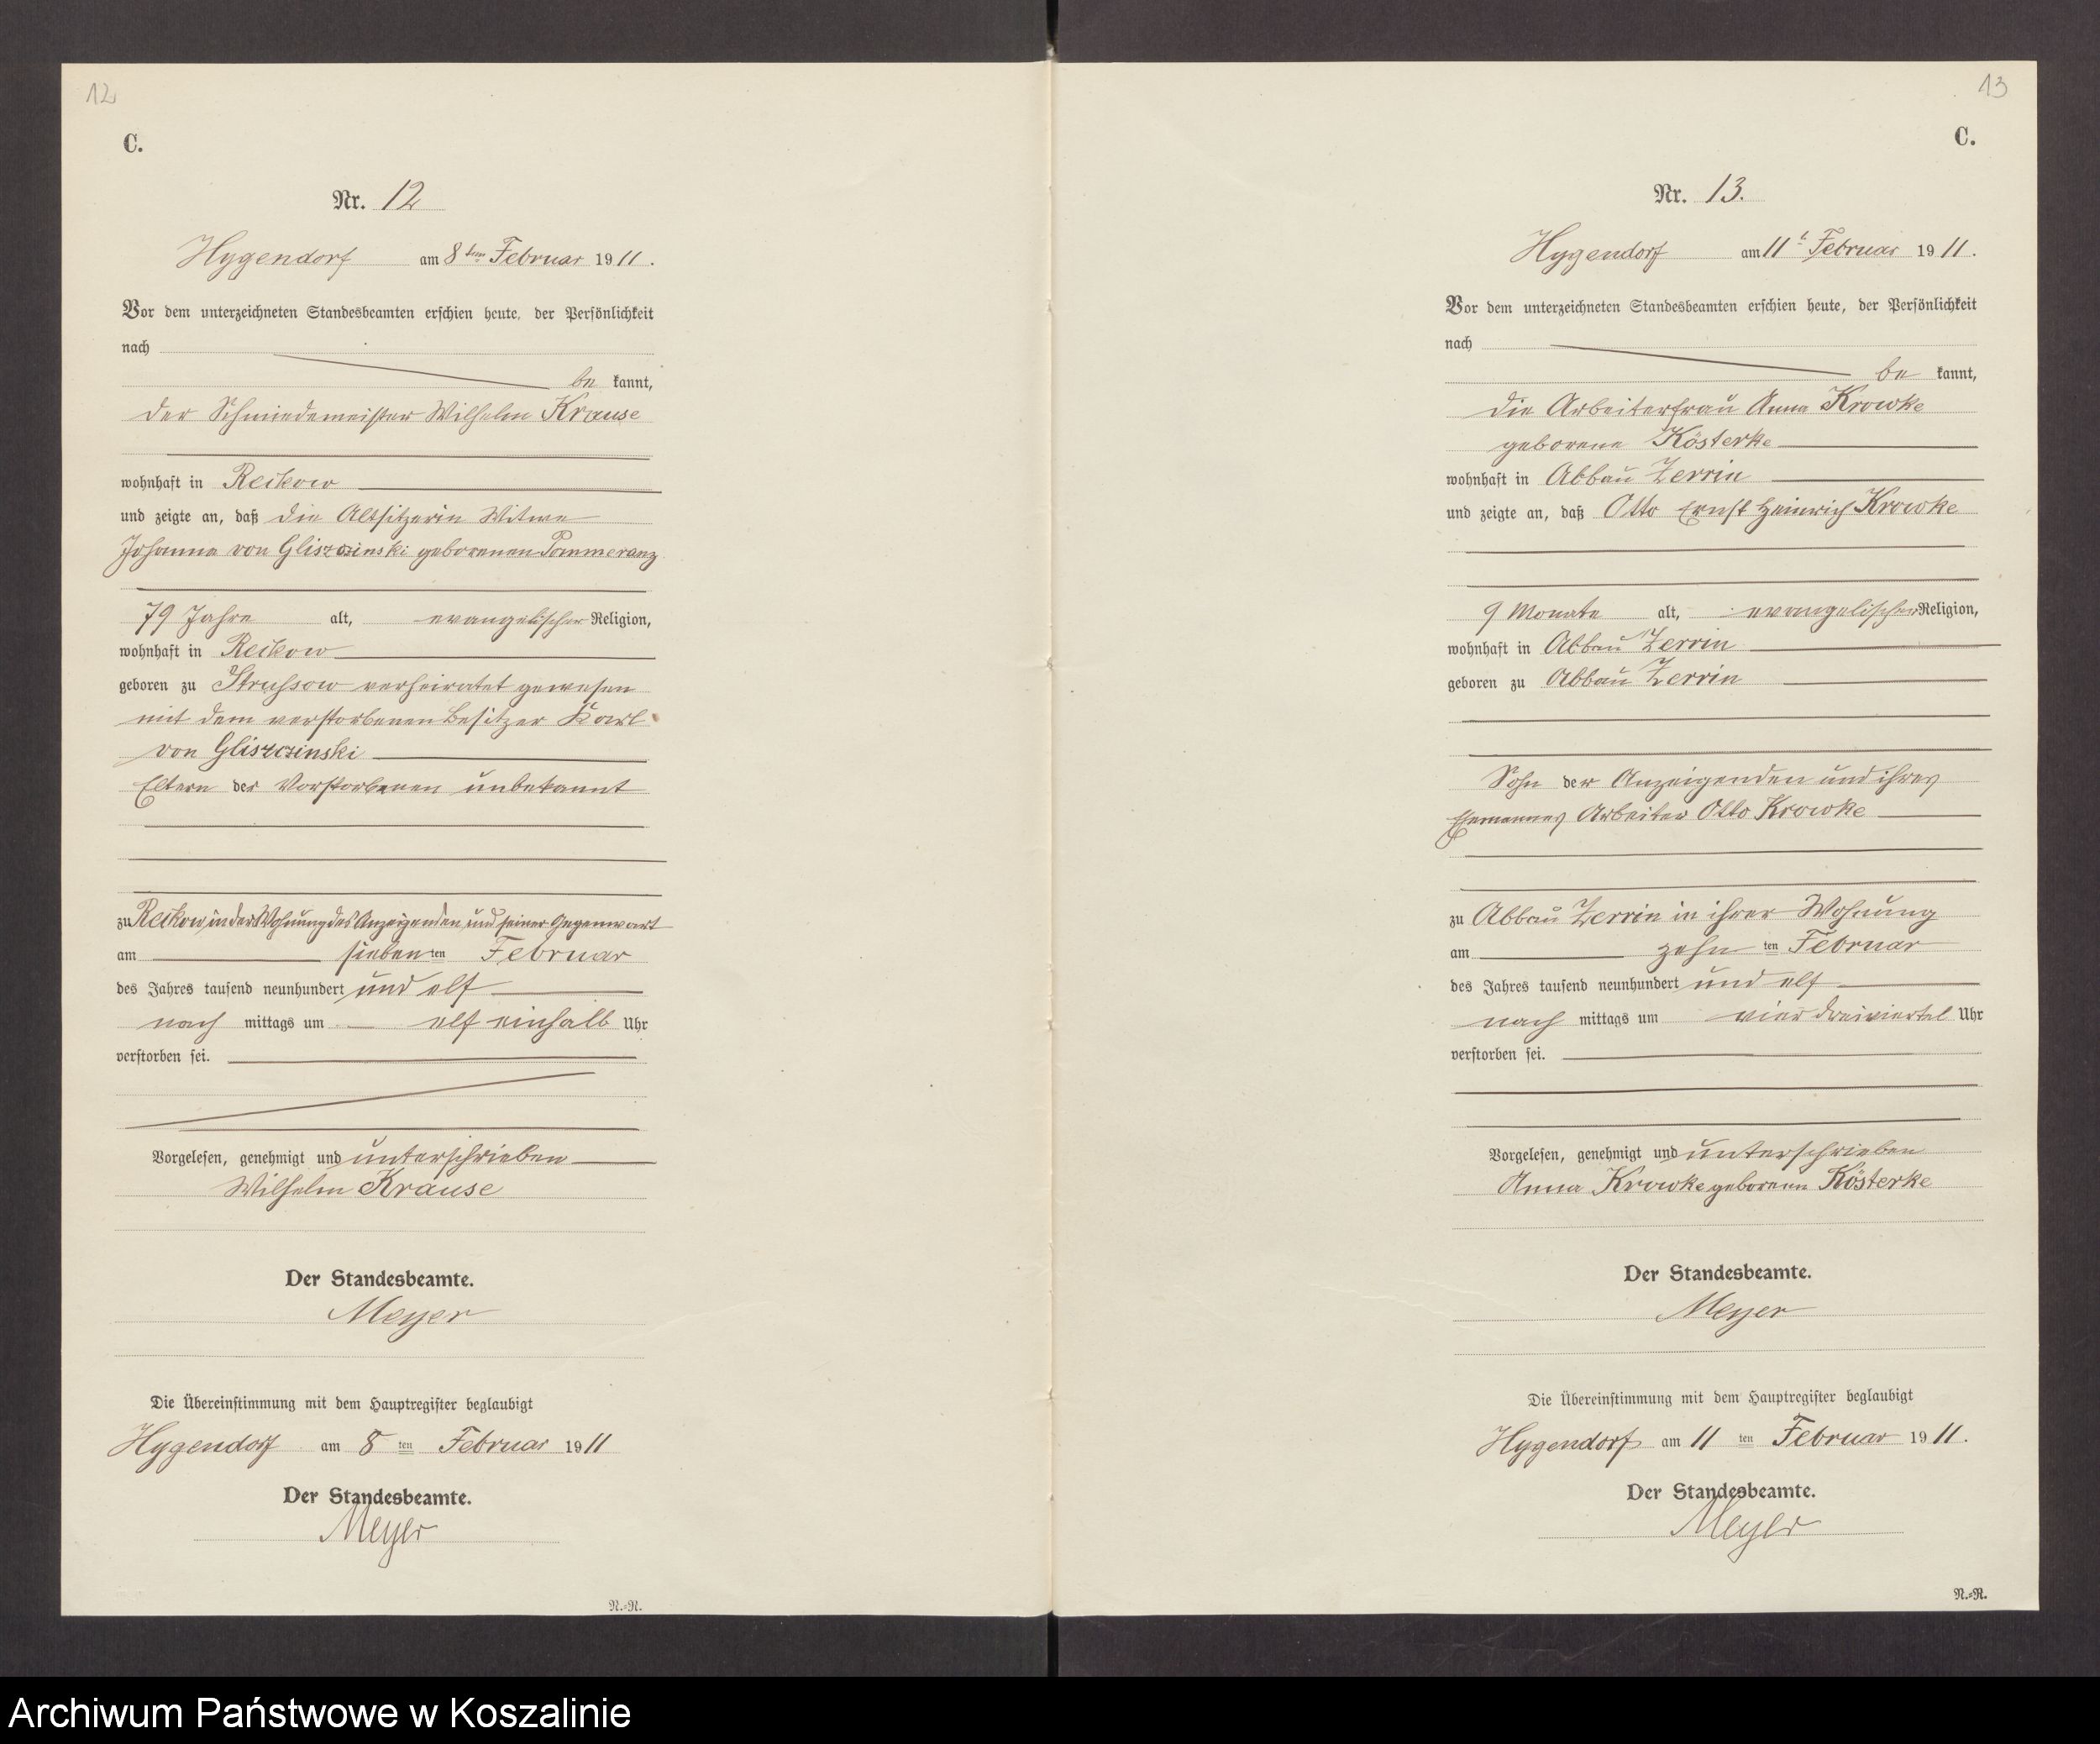 12
C.
Nr. 12
Hygendorf am 8ten Februar 1911.
Vor dem unterzeichneten Standesbeamten erschien heute, der Persönlichkeit
nach
be kannt,
der Schmiedemeister Wilhelm Krause
wohnhaft in Reckow
und zeigte an, daß die Altsitzerin Witwe
Johanna von Gliszczinski geborenen Pommeranz
79 Jahre alt, evangelischer Religion,
wohnhaft in Reckow
geboren zu Strussow verheiratet gewesen
mit dem verstorbenen Besitzer Karl
von Gliszczinski
Eltern der Verstorbenen unbekannt
zu Reckow in der Wohnung des Anzeigenden und seiner Gegenwart
am siebenten Februar
des Jahres tausend neunhundert und elf
nach mittags um elf einhalb Uhr
verstorben sei.
Vorgelesen, genehmigt und unterschrieben
Wilhelm Krause
Der Standesbeamte.
Meyer
Die Übereinstimmung mit dem Hauptregister beglaubigt
Hygendorf am 8 ten Februar 1911
Der Standesbeamte.
Meyer
N.=R.
13
C.
Nr. 13.
Hygendorf am 11t Februar 1911.
Vor dem unterzeichneten Standesbeamten erschien heute, der Persönlichkeit
nach
be kannt,
die Arbeiterfrau Anna Krowke
geborene Kösterke
wohnhaft in Abbau Zerrin
und zeigte an, daß Otto Ernst Heinrich Krowke
9 Monate alt, evangelischer Religion,
wohnhaft in Abbau Zerrin
geboren zu Abbau Zerrin
Sohn der Anzeigenden und ihres
Ehemannes Arbeiter Otto Krowke
zu Abbau Zerrin in ihrer Wohnung
am zehn ten Februar
des Jahres tausend neunhundert und elf
nach mittags um vier dreiviertel Uhr
verstorben sei.
Vorgelesen, genehmigt und unterschrieben
Anna Krowke geborene Kösterke
Der Standesbeamte.
Meyer
Die Übereinstimmung mit dem Hauptregister beglaubigt
Hygendorf am 11 ten Februar 1911.
Der Standesbeamte.
Meyer
N.=R.
Archiwum Państwowe w Koszalinie